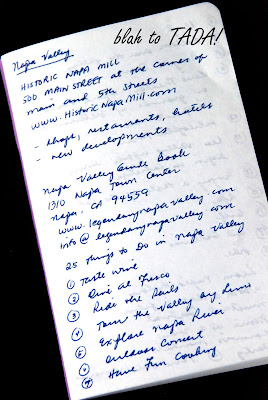 blah to TADA!
Napa Valley
HISTORIC NAPA MILL
500 MAIN STREET at the corner of
main and 5th Streets
www.HistoricNapaMill.com
- shops, restaurants, hotels
- new developments
Napa Valley Guide Book
1310 Napa Town Center
Napa, CA 94559
www.legendarynapavalley.com
info@legendarynapavalley.com
25 Things to Do in Napa Valley
① Taste wine
② Dine al Fresco
③ Ride the Rails
④ Tour the Valley by Limo
⑤ Explore Napa River
⑥ Outdoor Concert
⑦ Have Fun Cooking